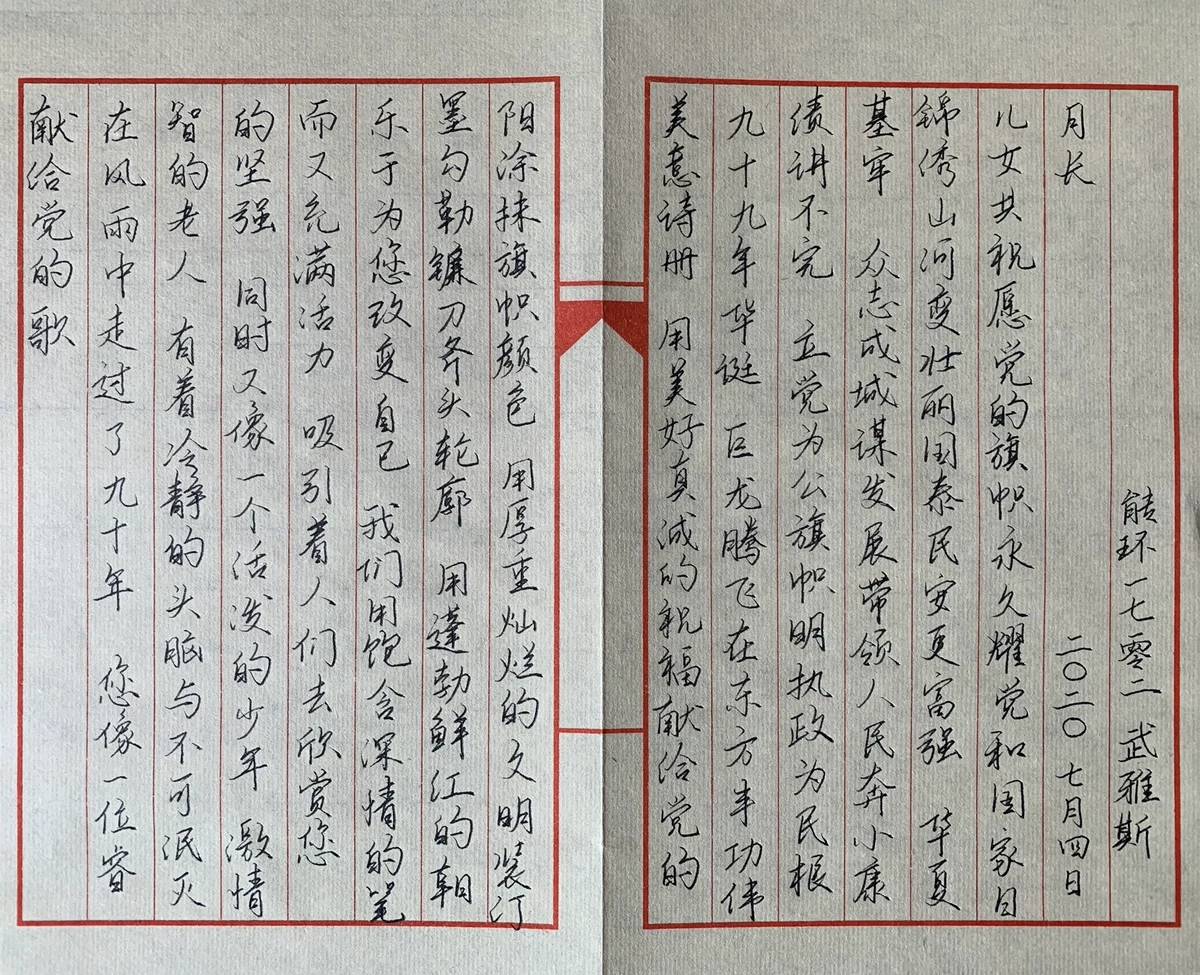 献给党的歌
在风雨中走过了九十年 您像一位睿
智的老人 有着冷静的头脑与不可泯灭
的坚强 同时又像一个活泼的少年 激情
而又充满活力 吸引着人们去欣赏您
乐于为您改变自己 我们用饱含深情的笔
墨勾勒镰刀斧头轮廓 用蓬勃鲜红的朝
阳涂抹旗帜颜色 用厚重灿烂的文明装订
美意诗册 用美好真诚的祝福献给党的
九十九年华诞 巨龙腾飞在东方丰功伟
绩讲不完 立党为公旗帜明执政为民根
基牢 众志成城谋发展带领人民奔小康
锦绣山河变壮丽国泰民安更富强 华夏
儿女共祝愿党的旗帜永久耀党和国家日
月长 二〇二〇 七月四日
能环一七零二 武雅斯